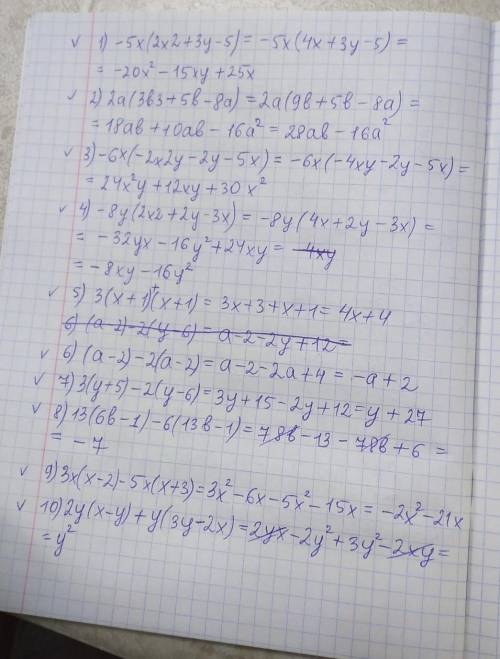 ✓ 1) -5x(2x2+3y-5) = -5x(4x+3y-5) =
= -20x² - 15xy + 25x
✓ 2) 2a(3b3+5b-8a) = 2a(9b+5b-8a) =
= 18ab + 10ab - 16a² = 28ab - 16a²
✓ 3) -6x(-2x2y-2y-5x) = -6x(-4xy-2y-5x) =
= 24x²y + 12xy + 30x²
✓ 4) -8y(2x2+2y-3x) = -8y(4x+2y-3x) =
= -32yx - 16y² + 24xy = -4xy
= -8xy - 16y²
✓ 5) 3(x+1)+(x+1) = 3x+3+x+1 = 4x+4
6) (a-2)-2(y-6) = a-2-2y+12 =
✓ 6) (a-2)-2(a-2) = a-2-2a+4 = -a+2
✓ 7) 3(y+5)-2(y-6) = 3y+15-2y+12 = y+27
✓ 8) 13(6b-1)-6(13b-1) = 78b-13-78b+6 =
= -7
✓ 9) 3x(x-2)-5x(x+3) = 3x²-6x-5x²-15x = -2x²-21x
✓ 10) 2y(x-y)+y(3y-2x) = 2yx-2y²+3y²-2xy =
= y²